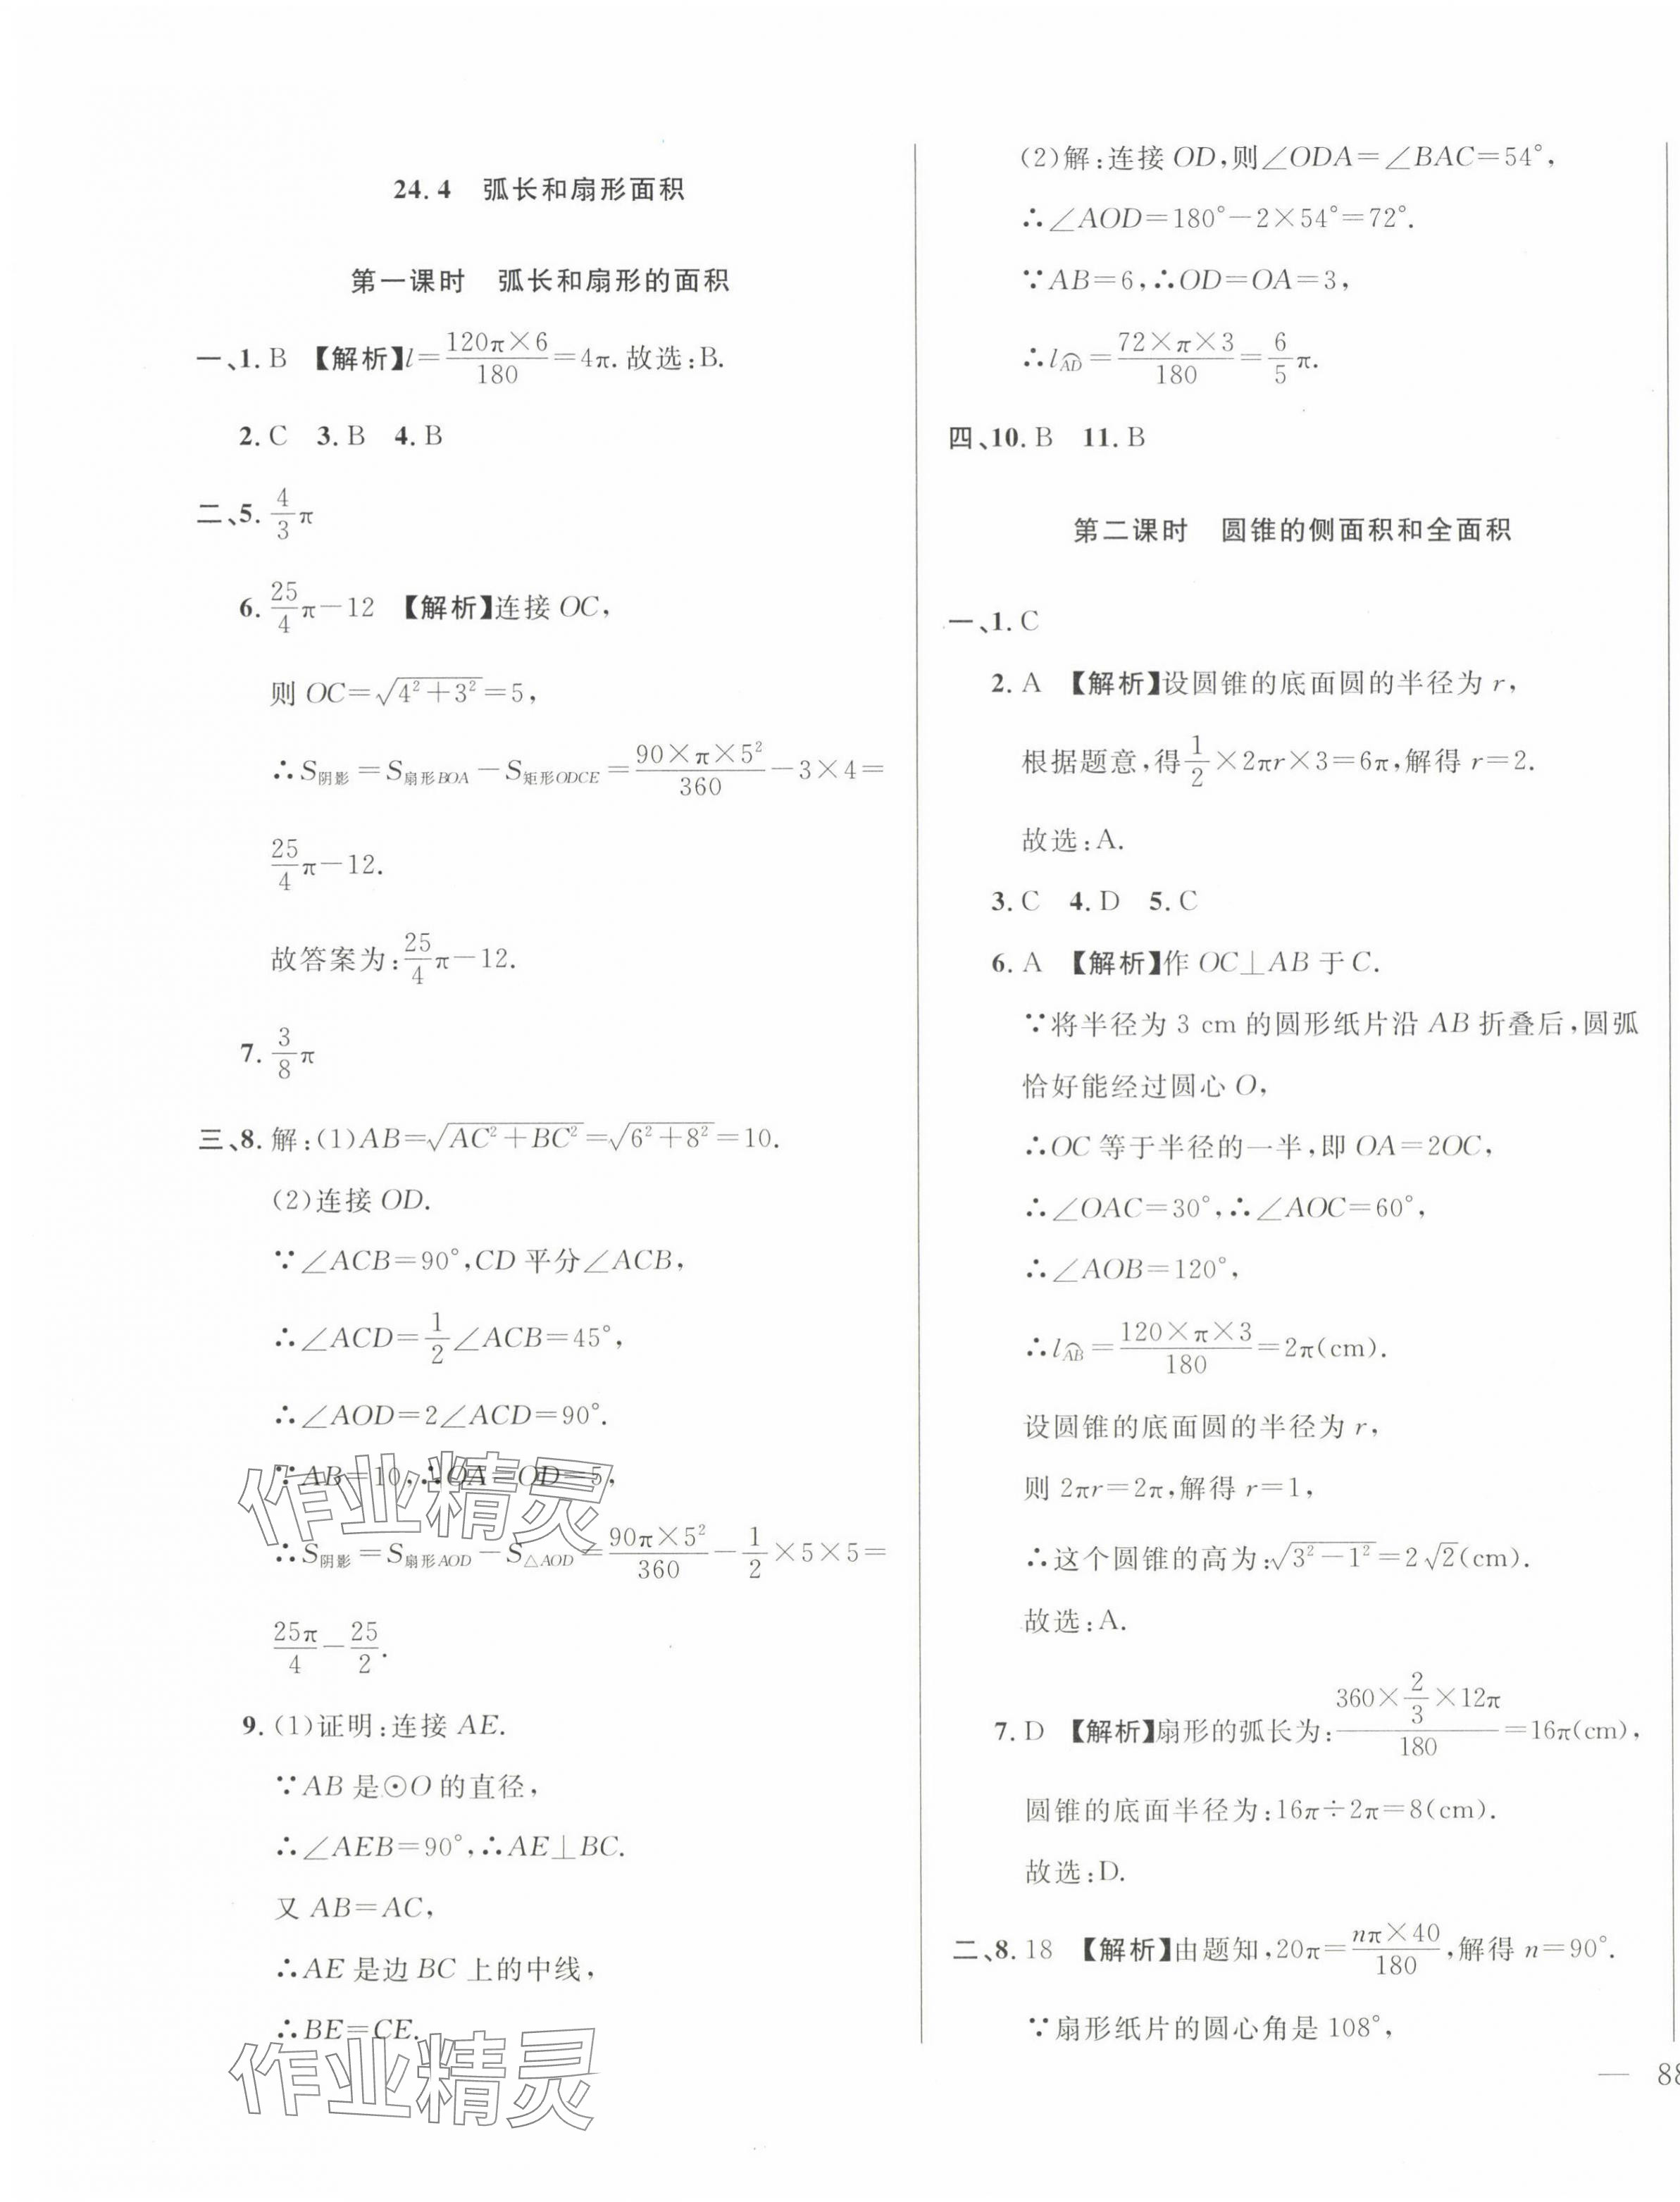 24.4 弧长和扇形面积
第一课时 弧长和扇形的面积
一、1. B 【解析】l=120π×6/180=4π.故选:B.
2. C 3. B 4. B
二、5. 4/3π
6. 25/4π-12 【解析】连接OC,
则OC=√(4²+3²)=5,
∴S阴影=S扇形BOA-S矩形ODCE=90×π×5²/360-3×4=
25/4π-12.
故答案为:25/4π-12.
7. 3/8π
三、8. 解:(1)AB=√(AC²+BC²)=√(6²+8²)=10.
(2)连接OD.
∵∠ACB=90°,CD平分∠ACB,
∴∠ACD=1/2∠ACB=45°,
∴∠AOD=2∠ACD=90°.
∵AB=10,∴OA=OD=5,
∴S阴影=S扇形AOD-S△AOD=90π×5²/360-1/2×5×5=
25π/4-25/2.
9. (1)证明:连接AE.
∵AB是⊙O的直径,
∴∠AEB=90°,∴AE⊥BC.
又AB=AC,
∴AE是边BC上的中线,
∴BE=CE.
(2)解:连接OD,则∠ODA=∠BAC=54°,
∴∠AOD=180°-2×54°=72°.
∵AB=6,∴OD=OA=3,
∴l⌒AD=72×π×3/180=6/5π.
四、10. B 11. B
第二课时 圆锥的侧面积和全面积
一、1. C
2. A 【解析】设圆锥的底面圆的半径为r,
根据题意,得1/2×2πr×3=6π,解得r=2.
故选:A.
3. C 4. D 5. C
6. A 【解析】作OC⊥AB于C.
∵将半径为3 cm的圆形纸片沿AB折叠后,圆弧
恰好能经过圆心O,
∴OC等于半径的一半,即OA=2OC,
∴∠OAC=30°,∴∠AOC=60°,
∴∠AOB=120°,
∴l⌒AB=120×π×3/180=2π(cm).
设圆锥的底面圆的半径为r,
则2πr=2π,解得r=1,
∴这个圆锥的高为:√(3²-1²)=2√2(cm).
故选:A.
7. D 【解析】扇形的弧长为:360×2/3×12π/180=16π(cm),
圆锥的底面半径为:16π÷2π=8(cm).
故选:D.
二、8. 18 【解析】由题知,20π=nπ×40/180,解得n=90°.
∵扇形纸片的圆心角是108°,
— 88
作业精灵
作业精灵